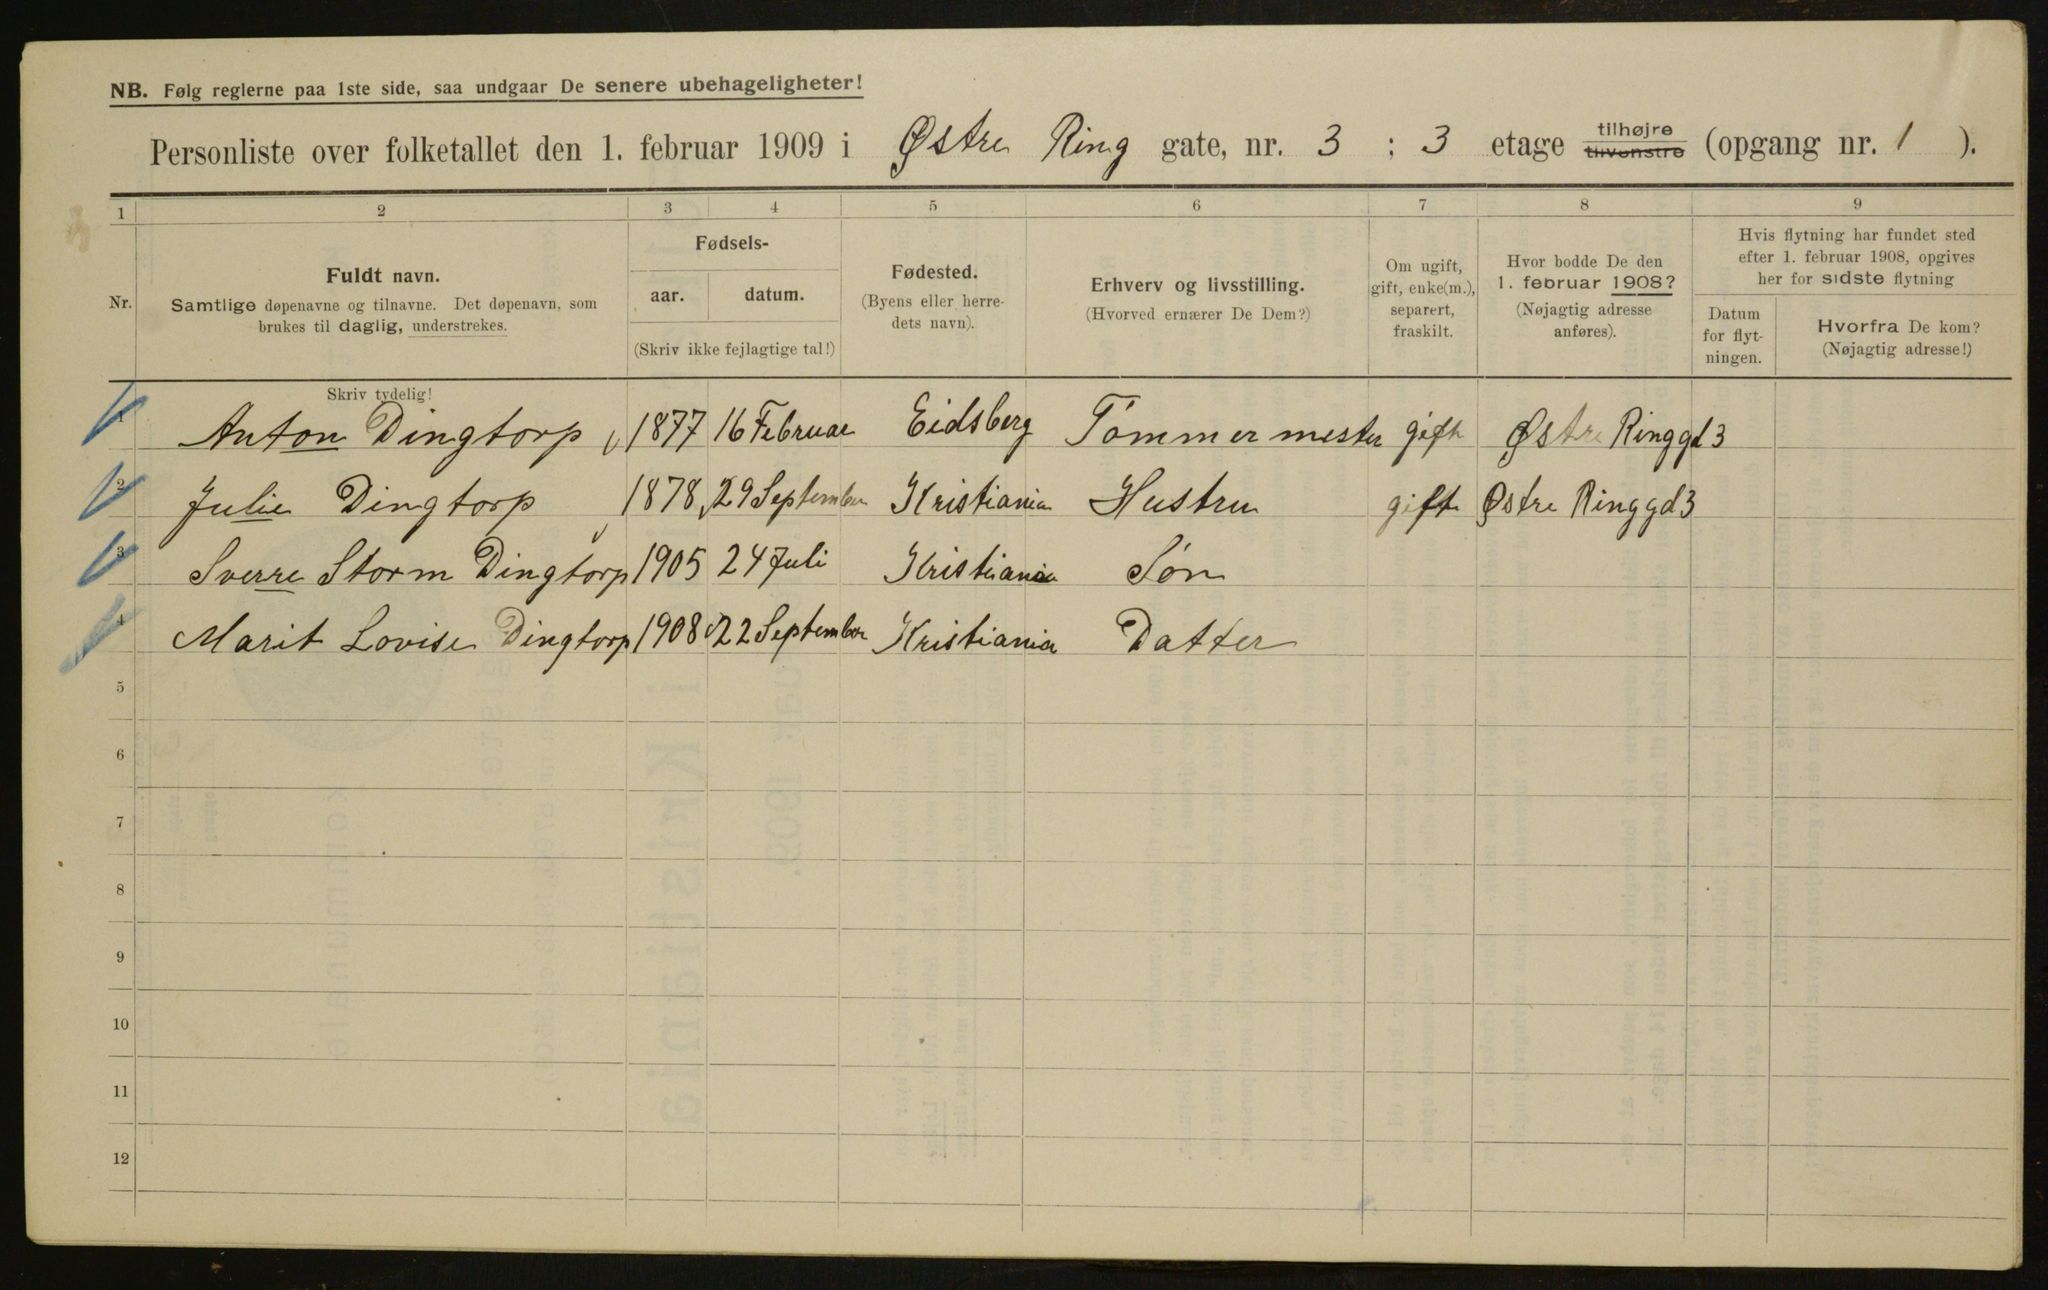 NB. Følg reglerne paa 1ste side, saa undgaar De senere ubehageligheter!
Personliste over folketallet den 1. februar 1909 i Østre Ring gate, nr. 3 ; 3 etage tilhøjre tilvenstre (opgang nr. 1 ).
1 2 3 4 5 6 7 8 9
Nr.
Fuldt navn.
Samtlige døpenavne og tilnavne. Det døpenavn, som
brukes til daglig, understrekes.
Fødsels-
aar. datum.
(Skriv ikke fejlagtige tal!)
Fødested.
(Byens eller herre-
dets navn).
Erhverv og livsstilling.
(Hvorved ernærer De Dem?)
Om ugift,
gift, enke(m.),
separert,
fraskilt.
Hvor bodde De den
1. februar 1908?
(Nøjagtig adresse
anføres).
Hvis flytning har fundet sted
efter 1. februar 1908, opgives
her for sidste flytning
Datum
for flyt-
ningen.
Hvorfra De kom?
(Nøjagtig adresse!)
Skriv tydelig!
1 Anton Dingtorp 1877 16 Februar Eidsberg Tømmermester gift Østre Ringgd 3
2 Julie Dingtorp 1878 29 September Kristiania Hustru gift Østre Ringgd 3
3 Sverre Storm Dingtorp 1905 24 Juli Kristiania Søn
4 Marit Lovise Dingtorp 1908 22 September Kristiania Datter
5
6
7
8
9
10
11
12